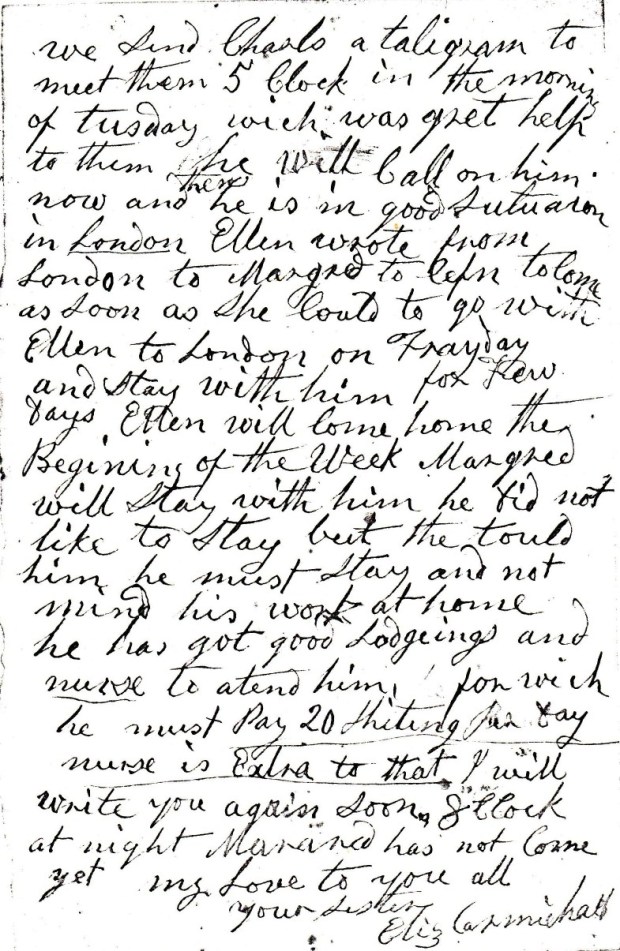 we send Charls a taligram to
meet them 5 Clock in the morning
of tusday wich was gret help
to them he will Call on him
now and then he is in good Sutuaion
in London Ellen wrote from
London to Margred to to Come
as soon as she Could to go with
Ellen to London on Frayday
and Stay with him for Few
days Ellen will Come home the
Begining of the Week Margred
will Stay with him he did not
like to Stay but the tould
him he must Stay and not
mind his work at home
he has got good Lodgeings and
nurse to atend him, for wich
he must Pay 20 Shiling Per day
nurse is Extra to that I will
write you again Soon, 8 Clock
at night has not Come
yet my Love to you all
your Sister
Eliz Carmichall